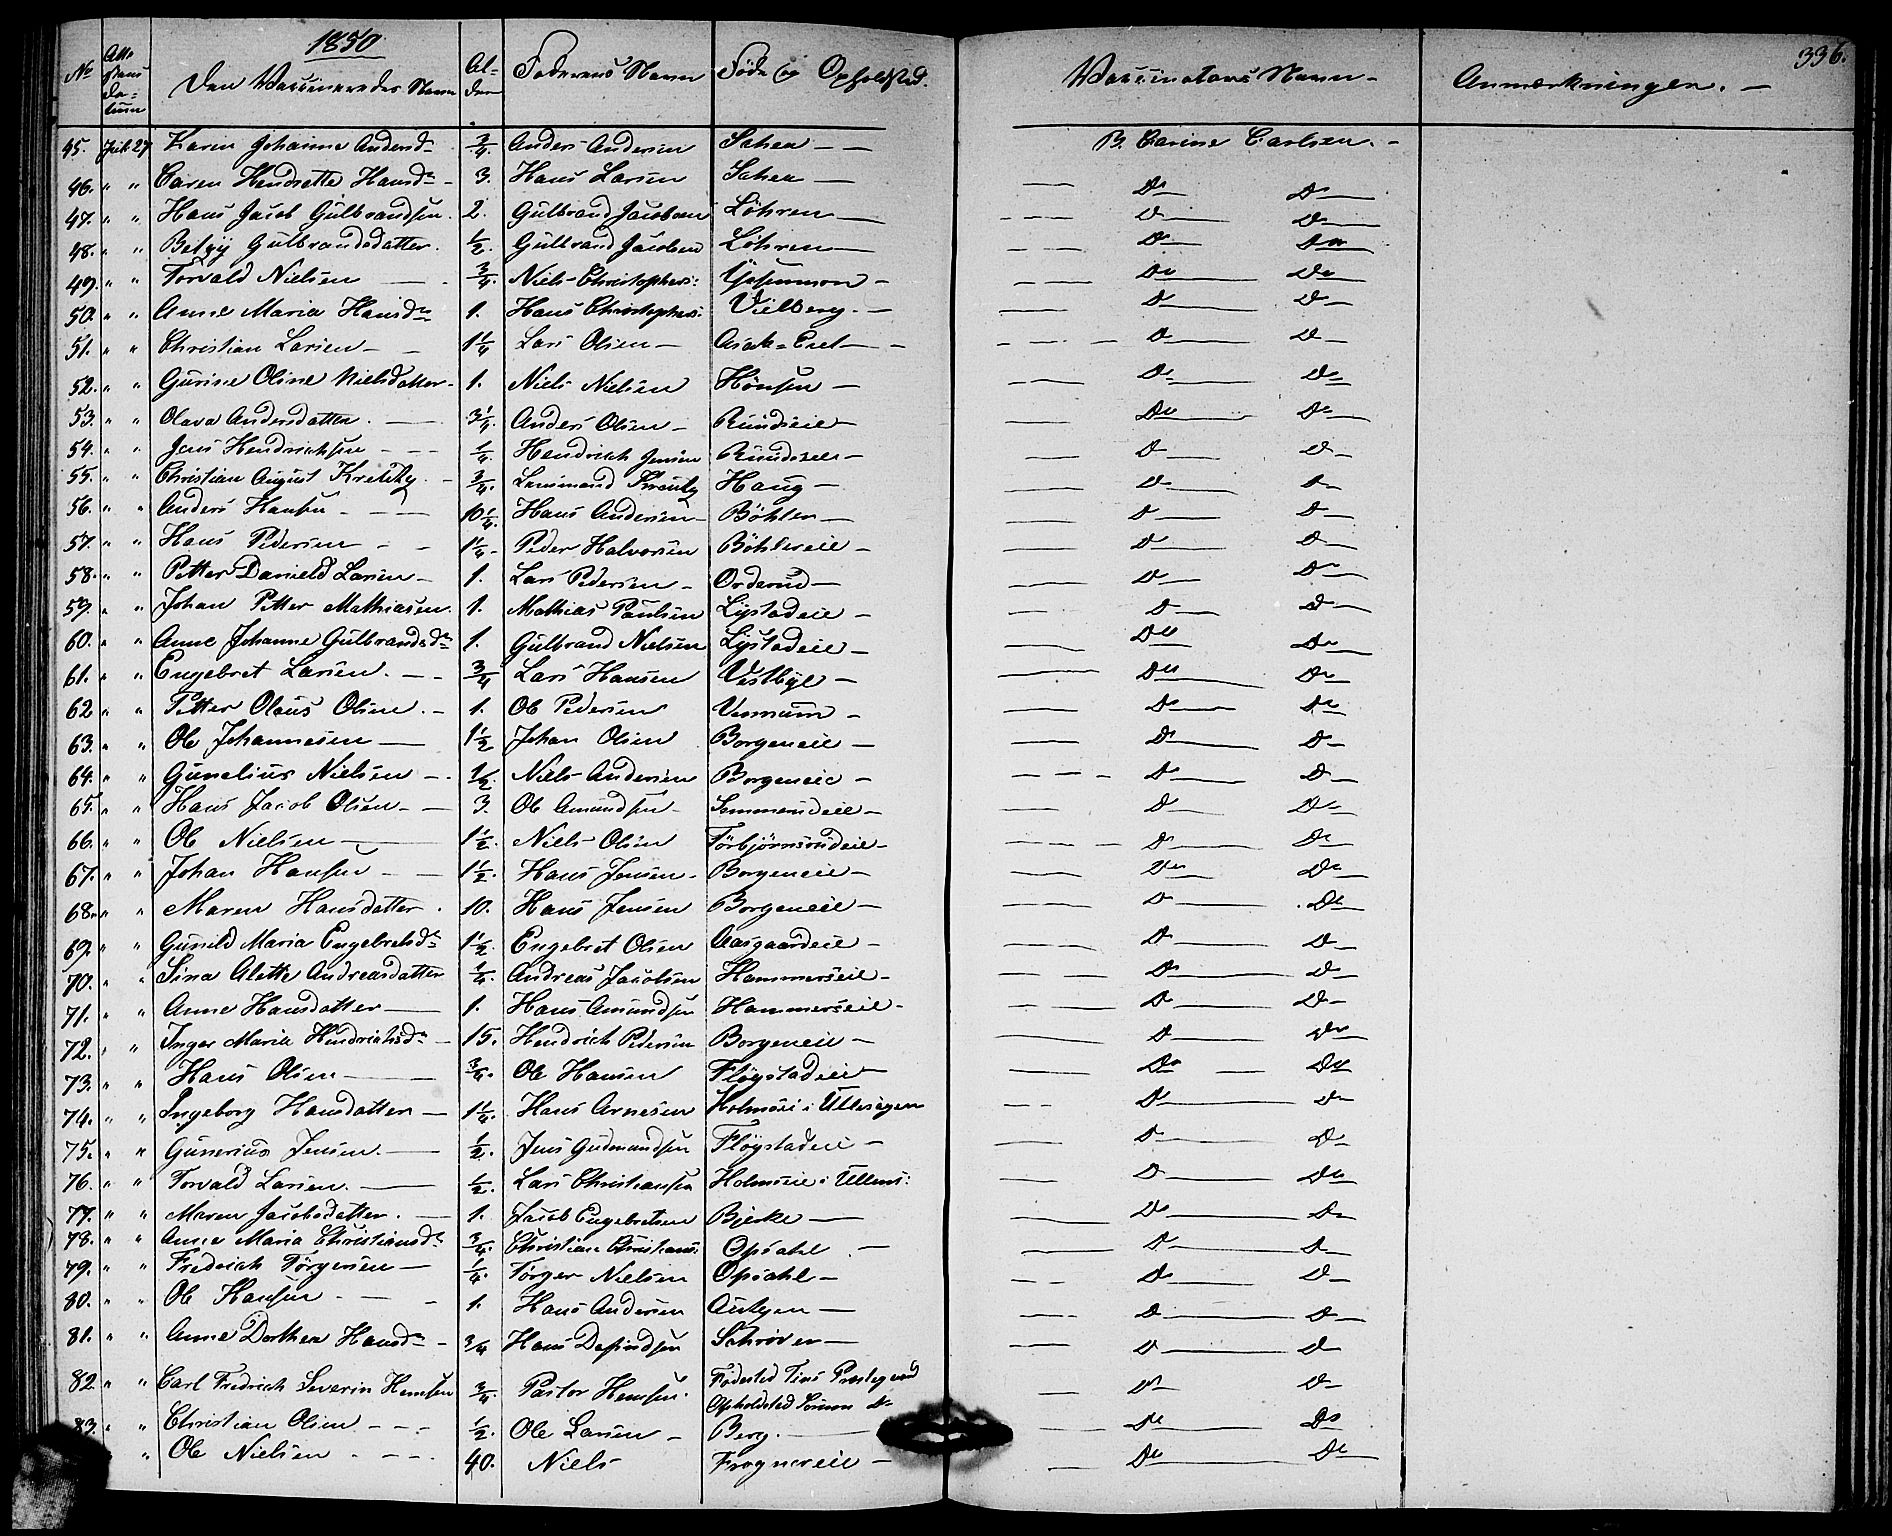 336.
1850
No Atte stans da= tum Den Vaccineredes Navn Al- der Faderens Navn Føde og Opholdsted. Vaccinateurs Navn - Anmærkninger. -
45. Juli 27 Karen Johanne Andersd 3/4. Anders Andersen Sahea - - B. Carine Carlsen. -
46. " " Caren Hendrette Hansdr - 3. Hans Larsen Sahea - Do Do
47. " " Hans Jacob Gulbrandsen. 2. Gulbrand Jacobsen Løhren - Do Do
48. " " Betzy Gulbrandsdatter. 1/2. Gulbrand Jacobsen Løhren - Do Do
49. " " Torvald Nielsen - 3/4. Niels Christophers: - Do Do
50. " " Anne Maria Hansdr 1. Hans Christophers: Vilberg. - Do Do
51. " " Christian Larsen - - 1 1/4 Lars Olsen - Asak=Eret - - Do Do
52. " " Gurine Oline Nielsdatter - 1. Niels Nielsen Hønsen - Do Do
53. " " Olava Andersdatter. - 3 1/4. Anders Olsen - Rundseie - Do Do
54. " " Jens Hendrichsen - - - 1/4. Hendrich Jensen Rundseie - Do Do
55. " " Christian August - 3/4. Haug - Do Do
56. " " Anders Hansen - - - 10 1/4. Hans Andersen Bøhler - Do Do
57. " " Hans Pedersen - - 1 1/4 - Peder Halvorsen Bøhlereie - Do Do
58. " " Petter Danield Larsen - 1. Lars Pedersen - Orderud - Do Do
59. " " Johan Petter Mathiasen. 1. Mathias Paulsen Lystadeie - Do Do
60. " " Anne Johanne Gulbrandsdr 1. Gulbrand Nielsen Lystadeie - Do Do
61. " " Engebret Larsen. - - 3/4 Lars Hansen Vestbye - Do Do
62 " " Petter Olaus Olsen. - 1. Ole Pedersen - Do Do
63. " " Ole Johannesen - 1 1/2 Johan Olsen Borgeneie - Do Do
64. " " Gunelius Nielsen - . 1/2. Niels Andersen Borgeneie - Do Do
65. " " Hans Jacob Olsen - - 3. Ole Amundsen - - Do Do
66. " " Ole Nielsen - 1 1/2. Niels Olsen Torbjørnsrudeie - Do Do
67. " " Johan Hansen - - 1 1/2. Hans Jensen - Borgeneie - Do Do
68. " " Maren Hansdatter. 10. Hans Jensen Borgeneie - Do Do
69. " " Gunild Maria Engebretsdr 1 1/2 Engebret Olsen Aasgaardeie - Do Do
70. " Sina Alette Andreasdatter 1/4. Andreas Jacobsen Hammerseie - Do Do
71. " Anne Hansdatter - 1. Hans Amundsen Hammerseie - Do Do
72. " " Inger Maria Hendrichsdr - 15. Hendrich Pedersen Borgeneie - Do Do
73. " " Hans Olsen - 3/4. Ole Hansen Fløgstadeie - Do Do
74. " " Ingeborg Hansdatter - 1 1/4. Hans Arnesen Holmseie i Ullensagen Do Do
75. " " Gunerius Jensen. - 1/2. Jens Gudmundsen Fløgstadeie - Do Do
76. " " Torvald Larsen. - 1/2. Lars Christiansen Holmseie i Ullens: Do Do
77. " " Maren Jacobsdatter. - 1. Jacob Engebretsen Bjerke - Do Do
78. " " Anne Maria Christiansdr 3/4. Christian Christians: Opsahl. - Do Do
79. " " Fredrich Torgersen - 1/4. Torger Nielsen Opsahl - Do Do
80. " " Ole Hansen - - - 1. Hans Andersen - Do Do
81. " " Anne Dorthea Hansdr - 3/4 Hans - Do Do
82 " " Carl Fredrich Severin Hemsen 3/4. Pastor Hemsen. Fødested Tins Præstegjeld Do Do
Opholdsted Sørum do
83. " Christian Olsen - - - 1/2. Ole Larsen - Berg. - Do Do
" Ole Nielsen - - - 40. Niels Frognereie - Do Do